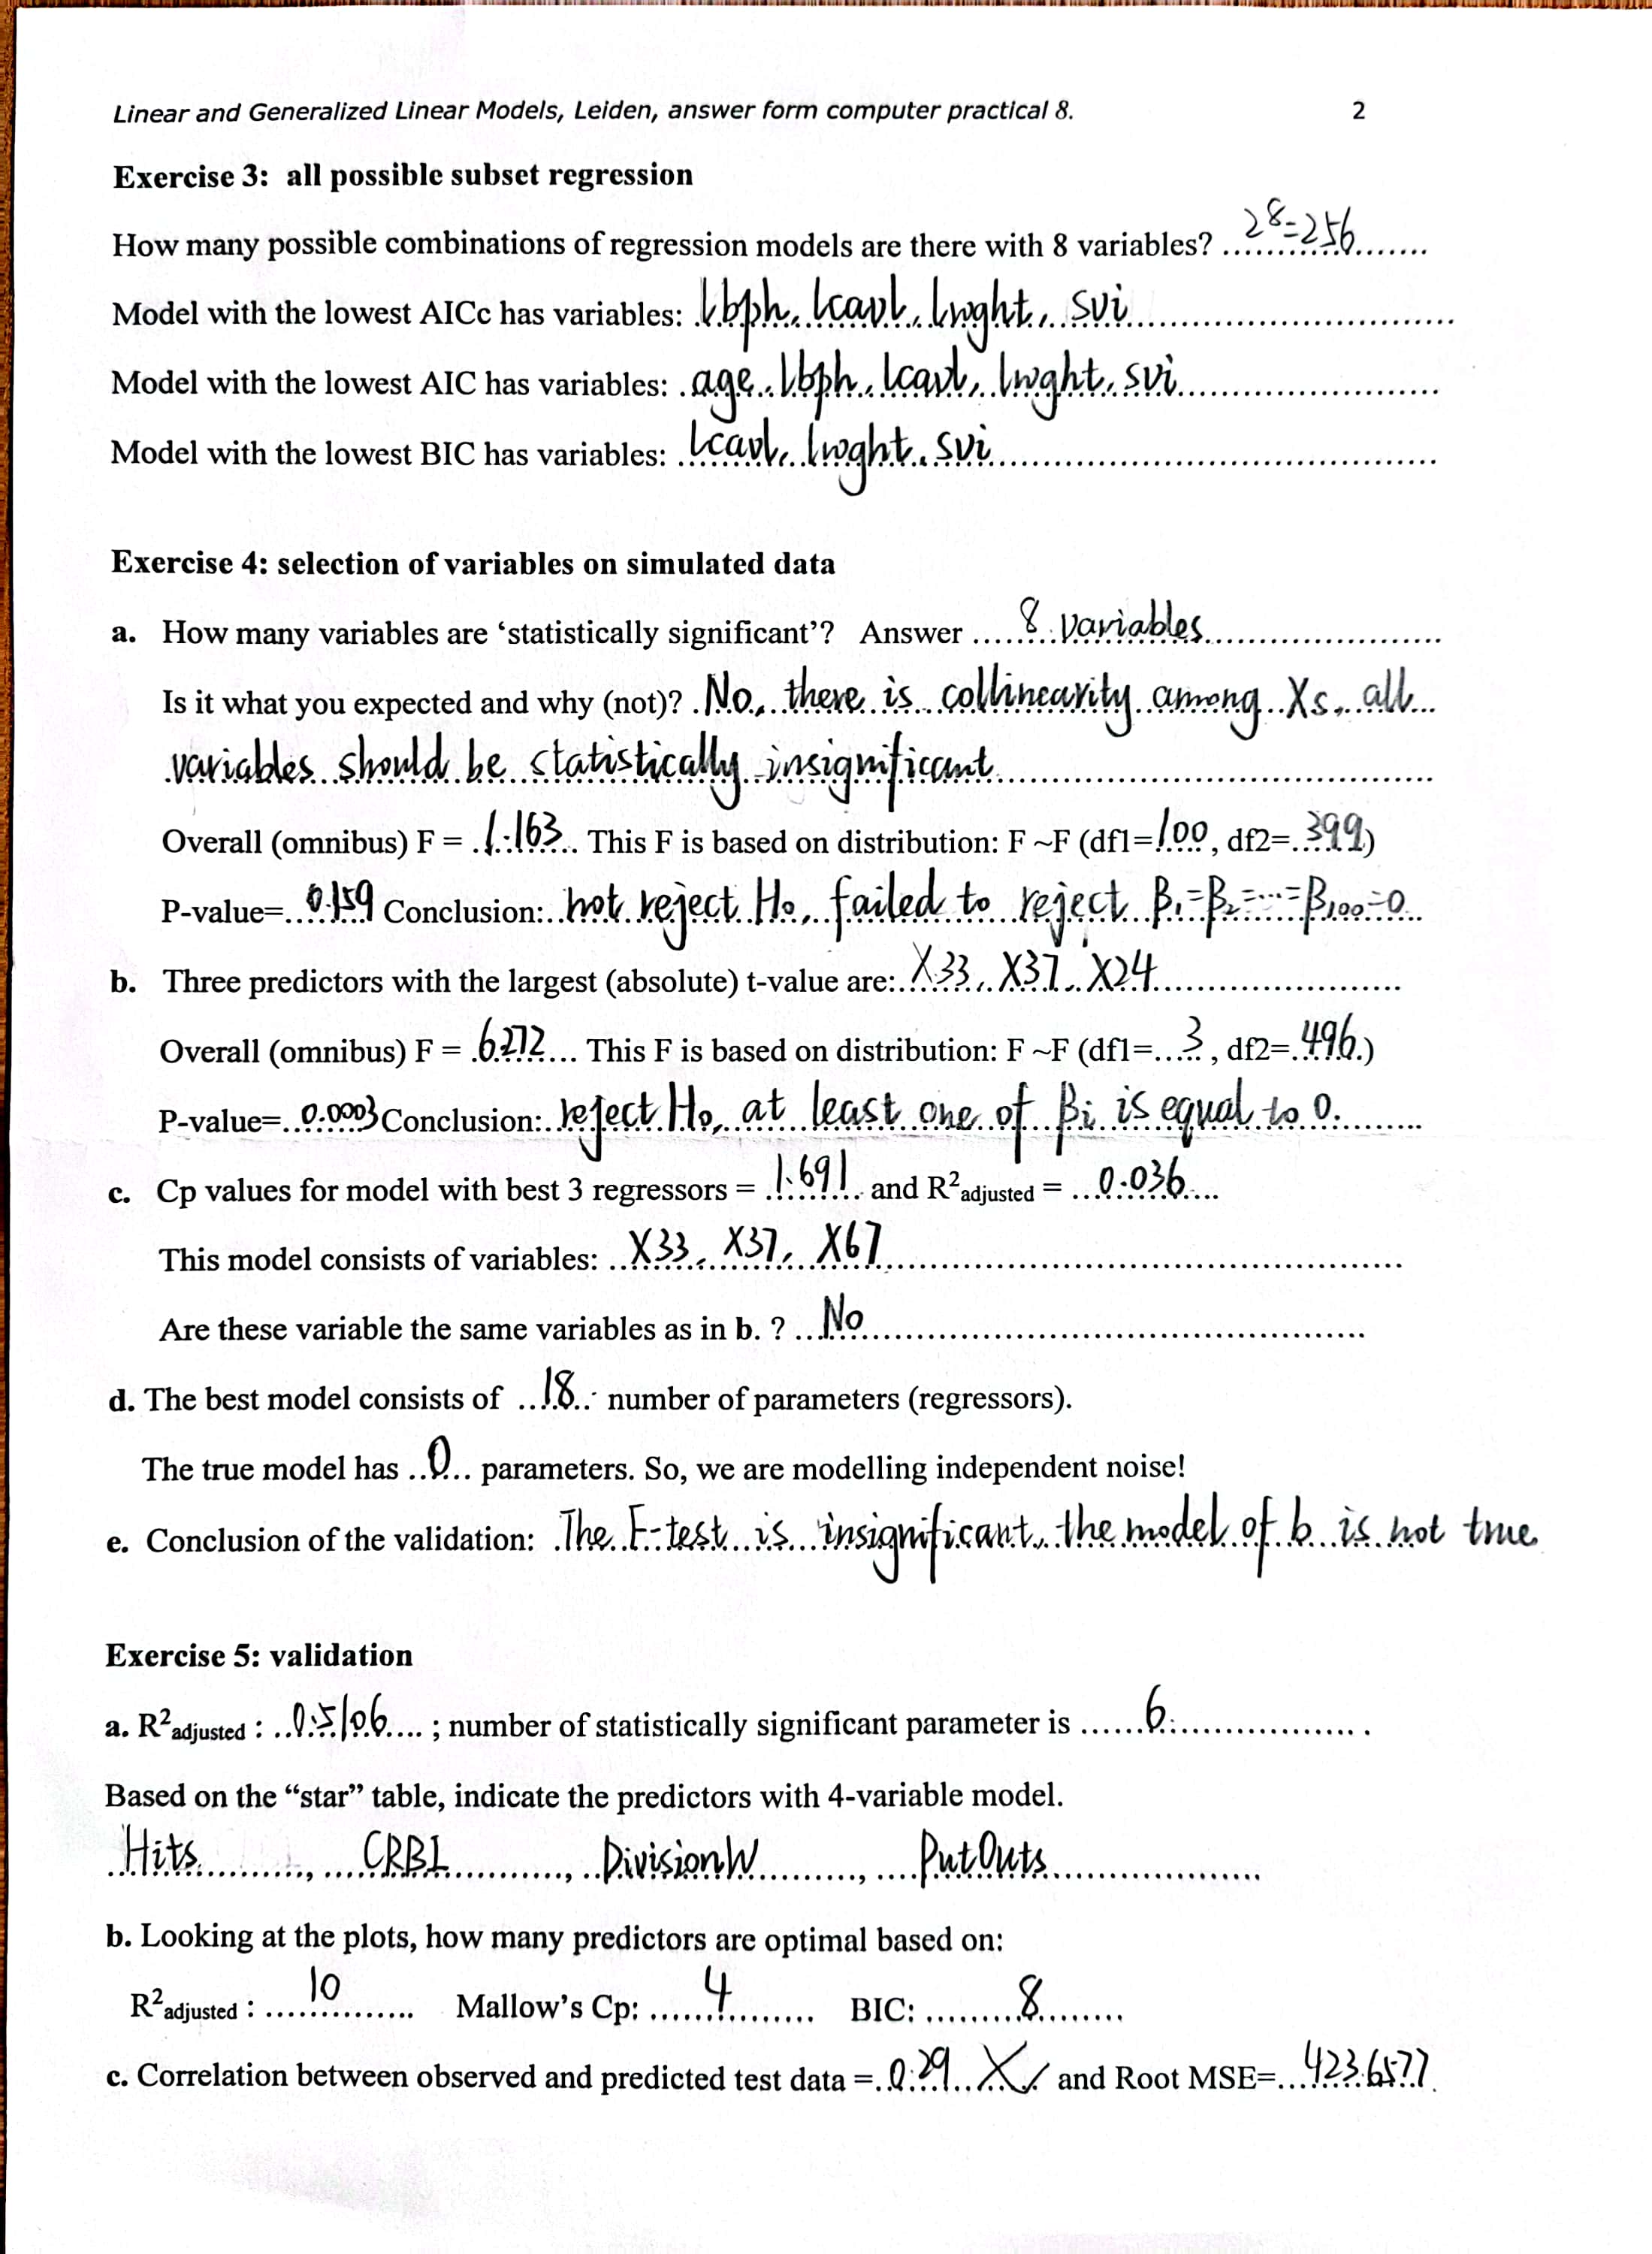 Linear and Generalized Linear Models, Leiden, answer form computer practical 8. 2
Exercise 3: all possible subset regression
How many possible combinations of regression models are there with 8 variables? 2⁸=256
Model with the lowest AICc has variables: lbph, lcavl, lwght, svi
Model with the lowest AIC has variables: age, lbph, lcavl, lwght, svi
Model with the lowest BIC has variables: lcavl, lwght, svi
Exercise 4: selection of variables on simulated data
a. How many variables are ‘statistically significant’? Answer 8 variables
Is it what you expected and why (not)? No, there is collinearity among Xs, all
variables should be statistically insignificant
Overall (omnibus) F = 1.163 This F is based on distribution: F ~F (df1=100, df2=399)
P-value= 0.159 Conclusion: not reject H₀, failed to reject β₁=β₂=···=β₁₀₀=0
b. Three predictors with the largest (absolute) t-value are: X33, X37, X24
Overall (omnibus) F = 6.272 This F is based on distribution: F ~F (df1=3, df2=496)
P-value= 0.0003 Conclusion: reject H₀, at least one of βi is equal to 0.
c. Cp values for model with best 3 regressors = 1.691 and R²adjusted = 0.036
This model consists of variables: X33, X37, X67
Are these variable the same variables as in b. ? No
d. The best model consists of 18 number of parameters (regressors).
The true model has 0 parameters. So, we are modelling independent noise!
e. Conclusion of the validation: The F-test is insignificant, the model of b is not true
Exercise 5: validation
a. R²adjusted : 0.5106 ; number of statistically significant parameter is 6
Based on the “star” table, indicate the predictors with 4-variable model.
Hits, CRBI, DivisionW, PutOuts
b. Looking at the plots, how many predictors are optimal based on:
R²adjusted : 10 Mallow’s Cp: 4 BIC: 8
c. Correlation between observed and predicted test data = 0.29 X and Root MSE= 423.6577